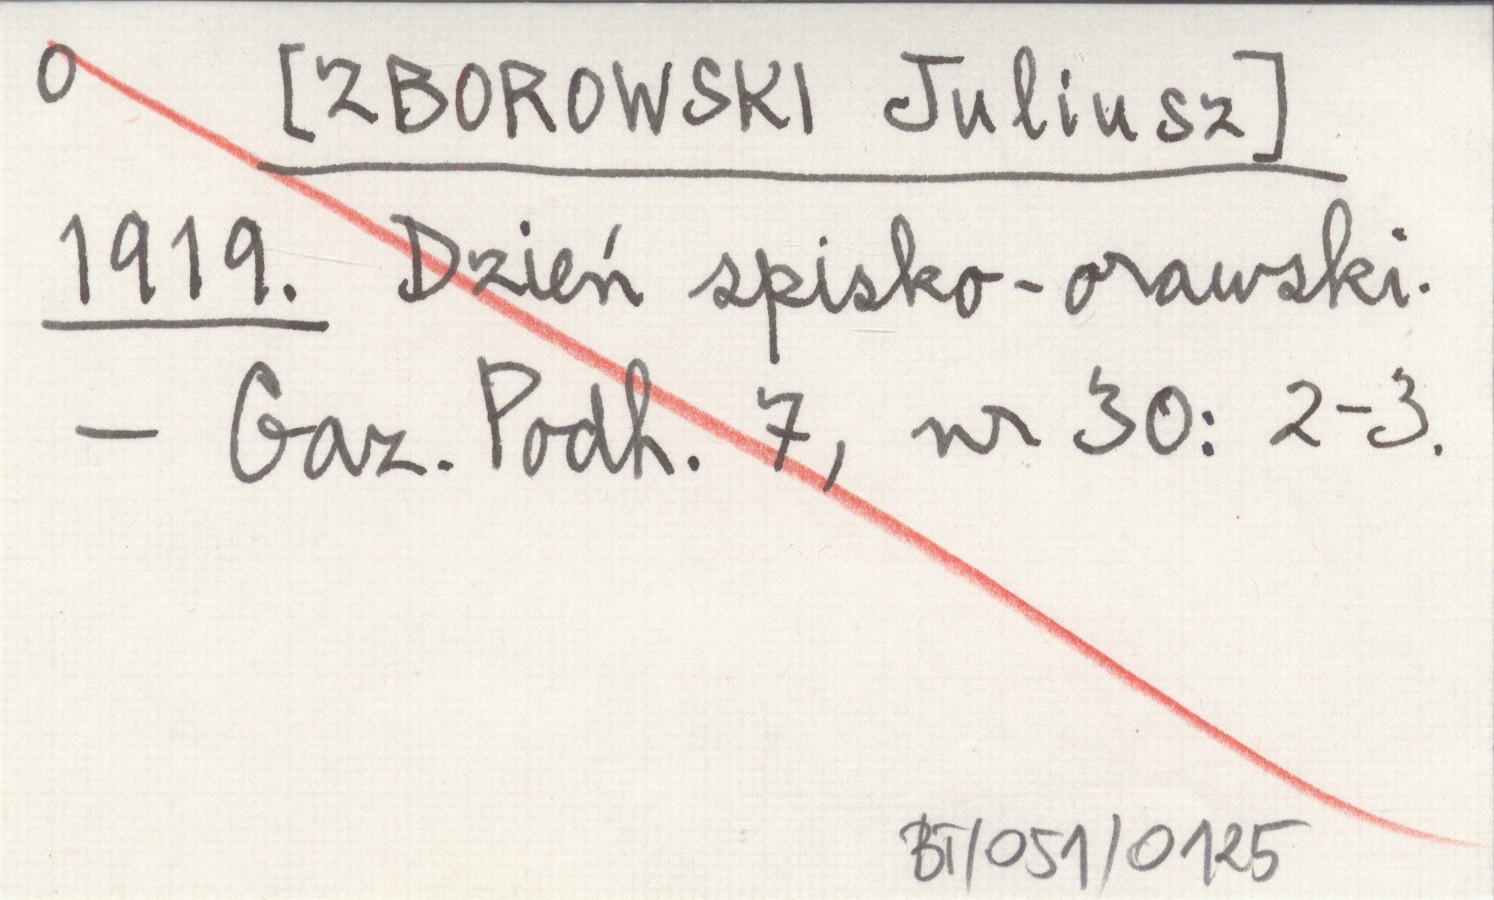 0 [ZBOROWSKI Juliusz]
1919. Dzień spisko-orawski.
— Gaz. Podh. 7, nr 30: 2-3.
BT/051/0125